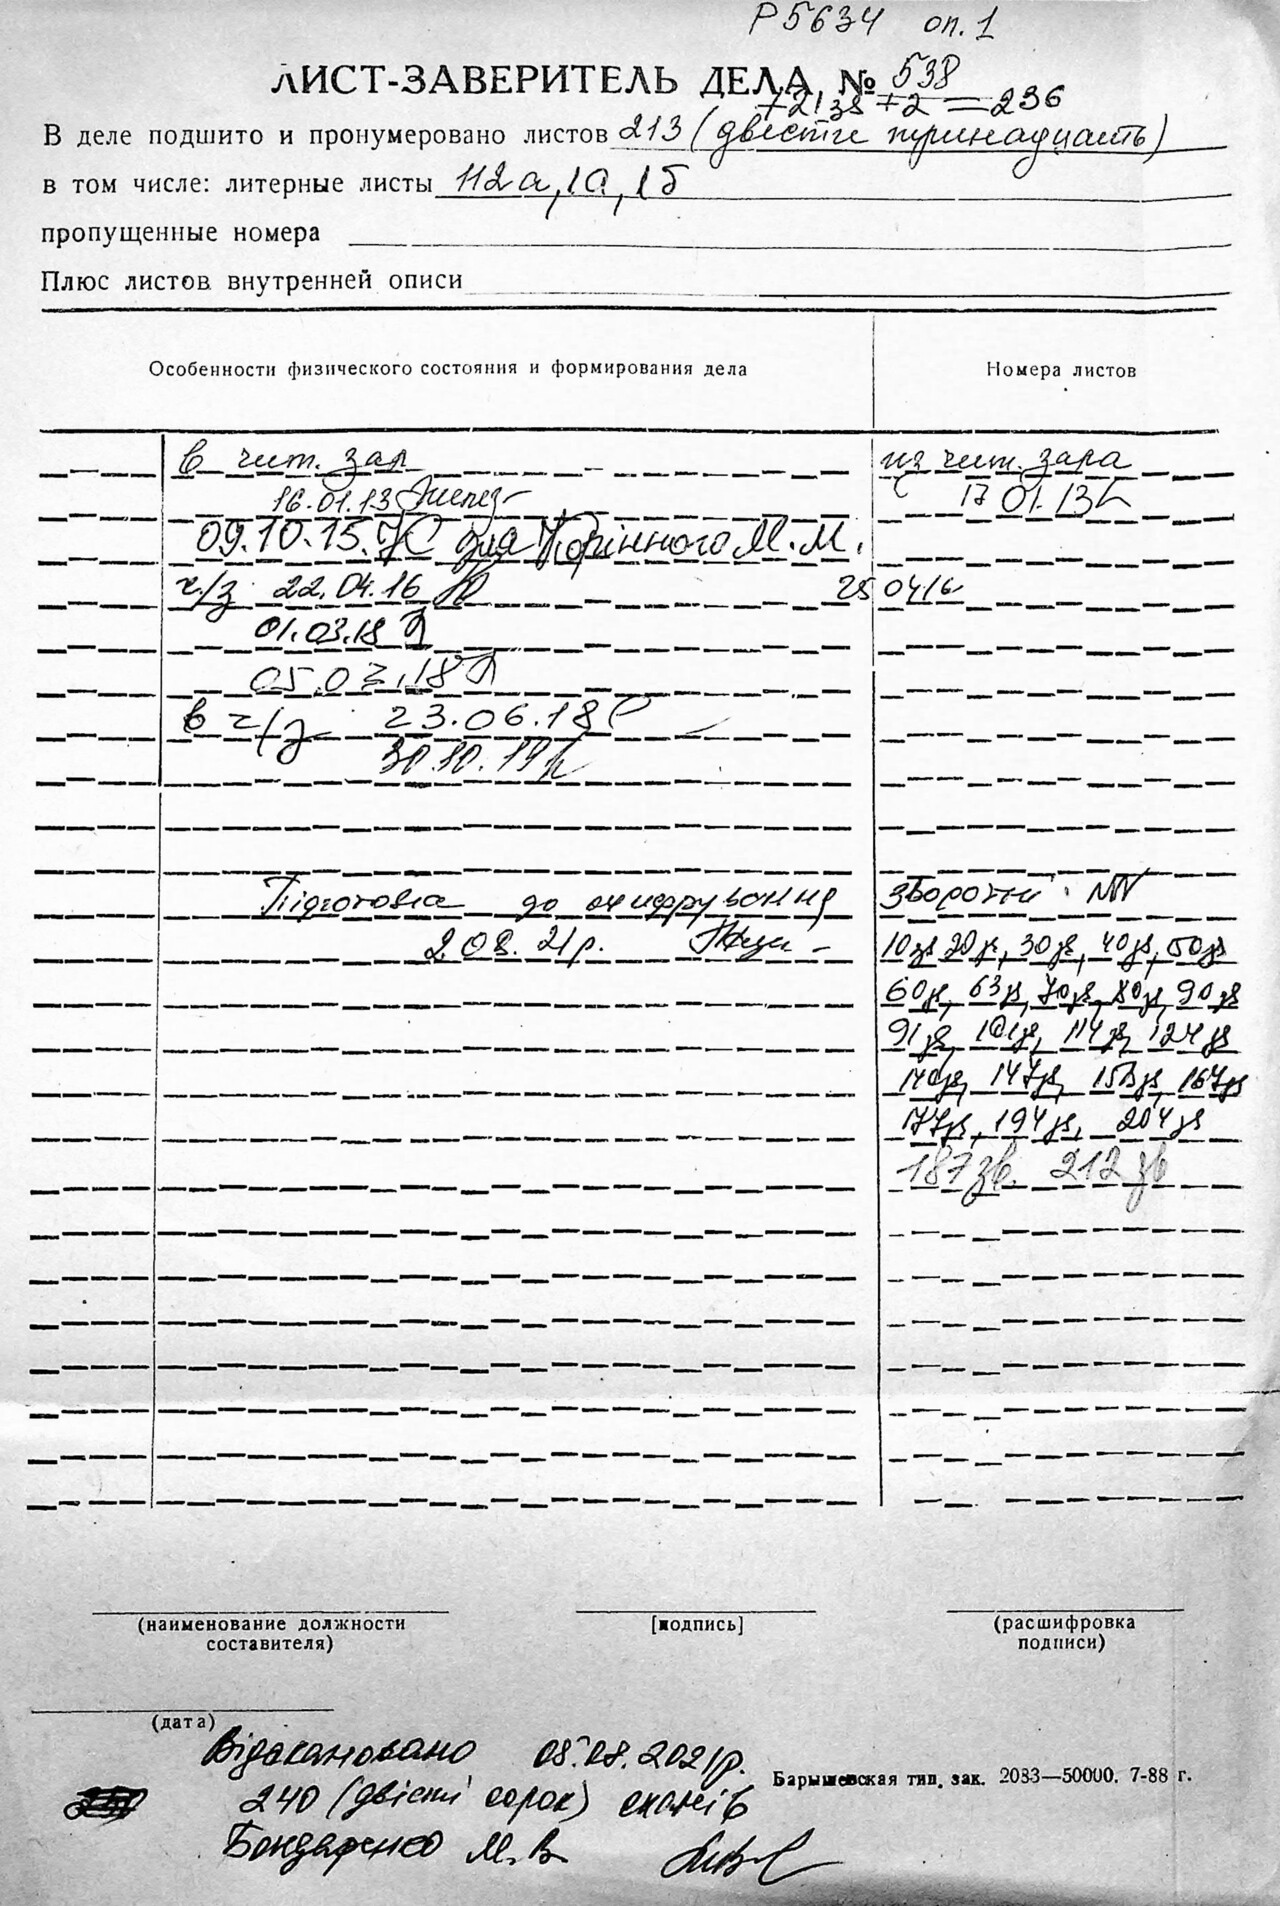 Р5634 оп. 1
ЛИСТ-ЗАВЕРИТЕЛЬ ДЕЛА № 538
+21зв +2 = 236
В деле подшито и пронумеровано листов 213 (двести тринадцать)
в том числе: литерные листы 112а, 1а, 1б
пропущенные номера
Плюс листов внутренней описи
Особенности физического состояния и формирования дела Номера листов
в чит. зал из чит. зала
16.01.13 17 01.13
09.10.15. КС для Корінного М.М.
ч/з 22.04.16 25 04 16
01.03.18
05.03.18
в ч/з 23.06.18
30.10.19
Підготовка до оцифрування звороти
2.08.21р.
10зв 20зв, 30зв, 40зв, 50зв
60зв, 63зв, 70зв, 80зв, 90зв
91зв, 101зв, 114зв, 124зв
140зв, 147зв, 153зв, 167зв
177зв, 194зв, 204зв
187зв. 212 зв
(наименование должности составителя) [подпись] (расшифровка подписи)
(дата)
Відскановано 05.08.2021р.
Барышевская тип. зак. 2083—50000. 7-88 г.
240 (двісті сорок) сканів
Бондаренко М.В.